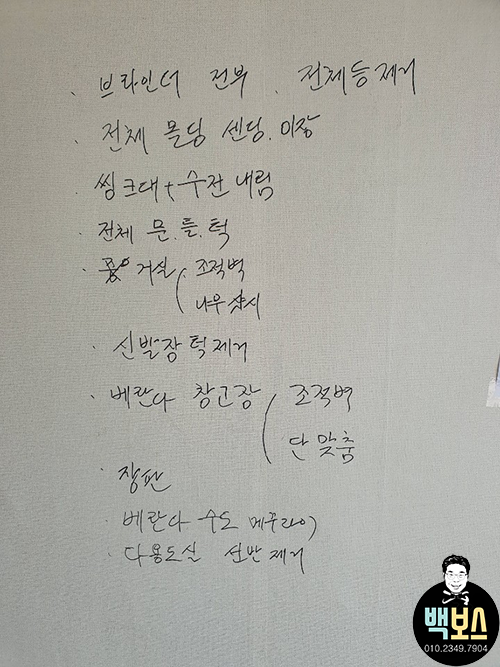 · 브라인더 전부 · 전체등제거
· 전체 몰딩 센딩. 미장
· 씽크대 + 수전 내림
· 전체 문.틀.턱
· 거실 ( 조적벽
나우 샷시
· 신발장 턱제거
· 베란다 창고장 ( 조적벽
단 맞춤
· 장판
· 베란다 수도 메꾸라이
· 다용도실 선반 제거
백보스
010.2349.7904